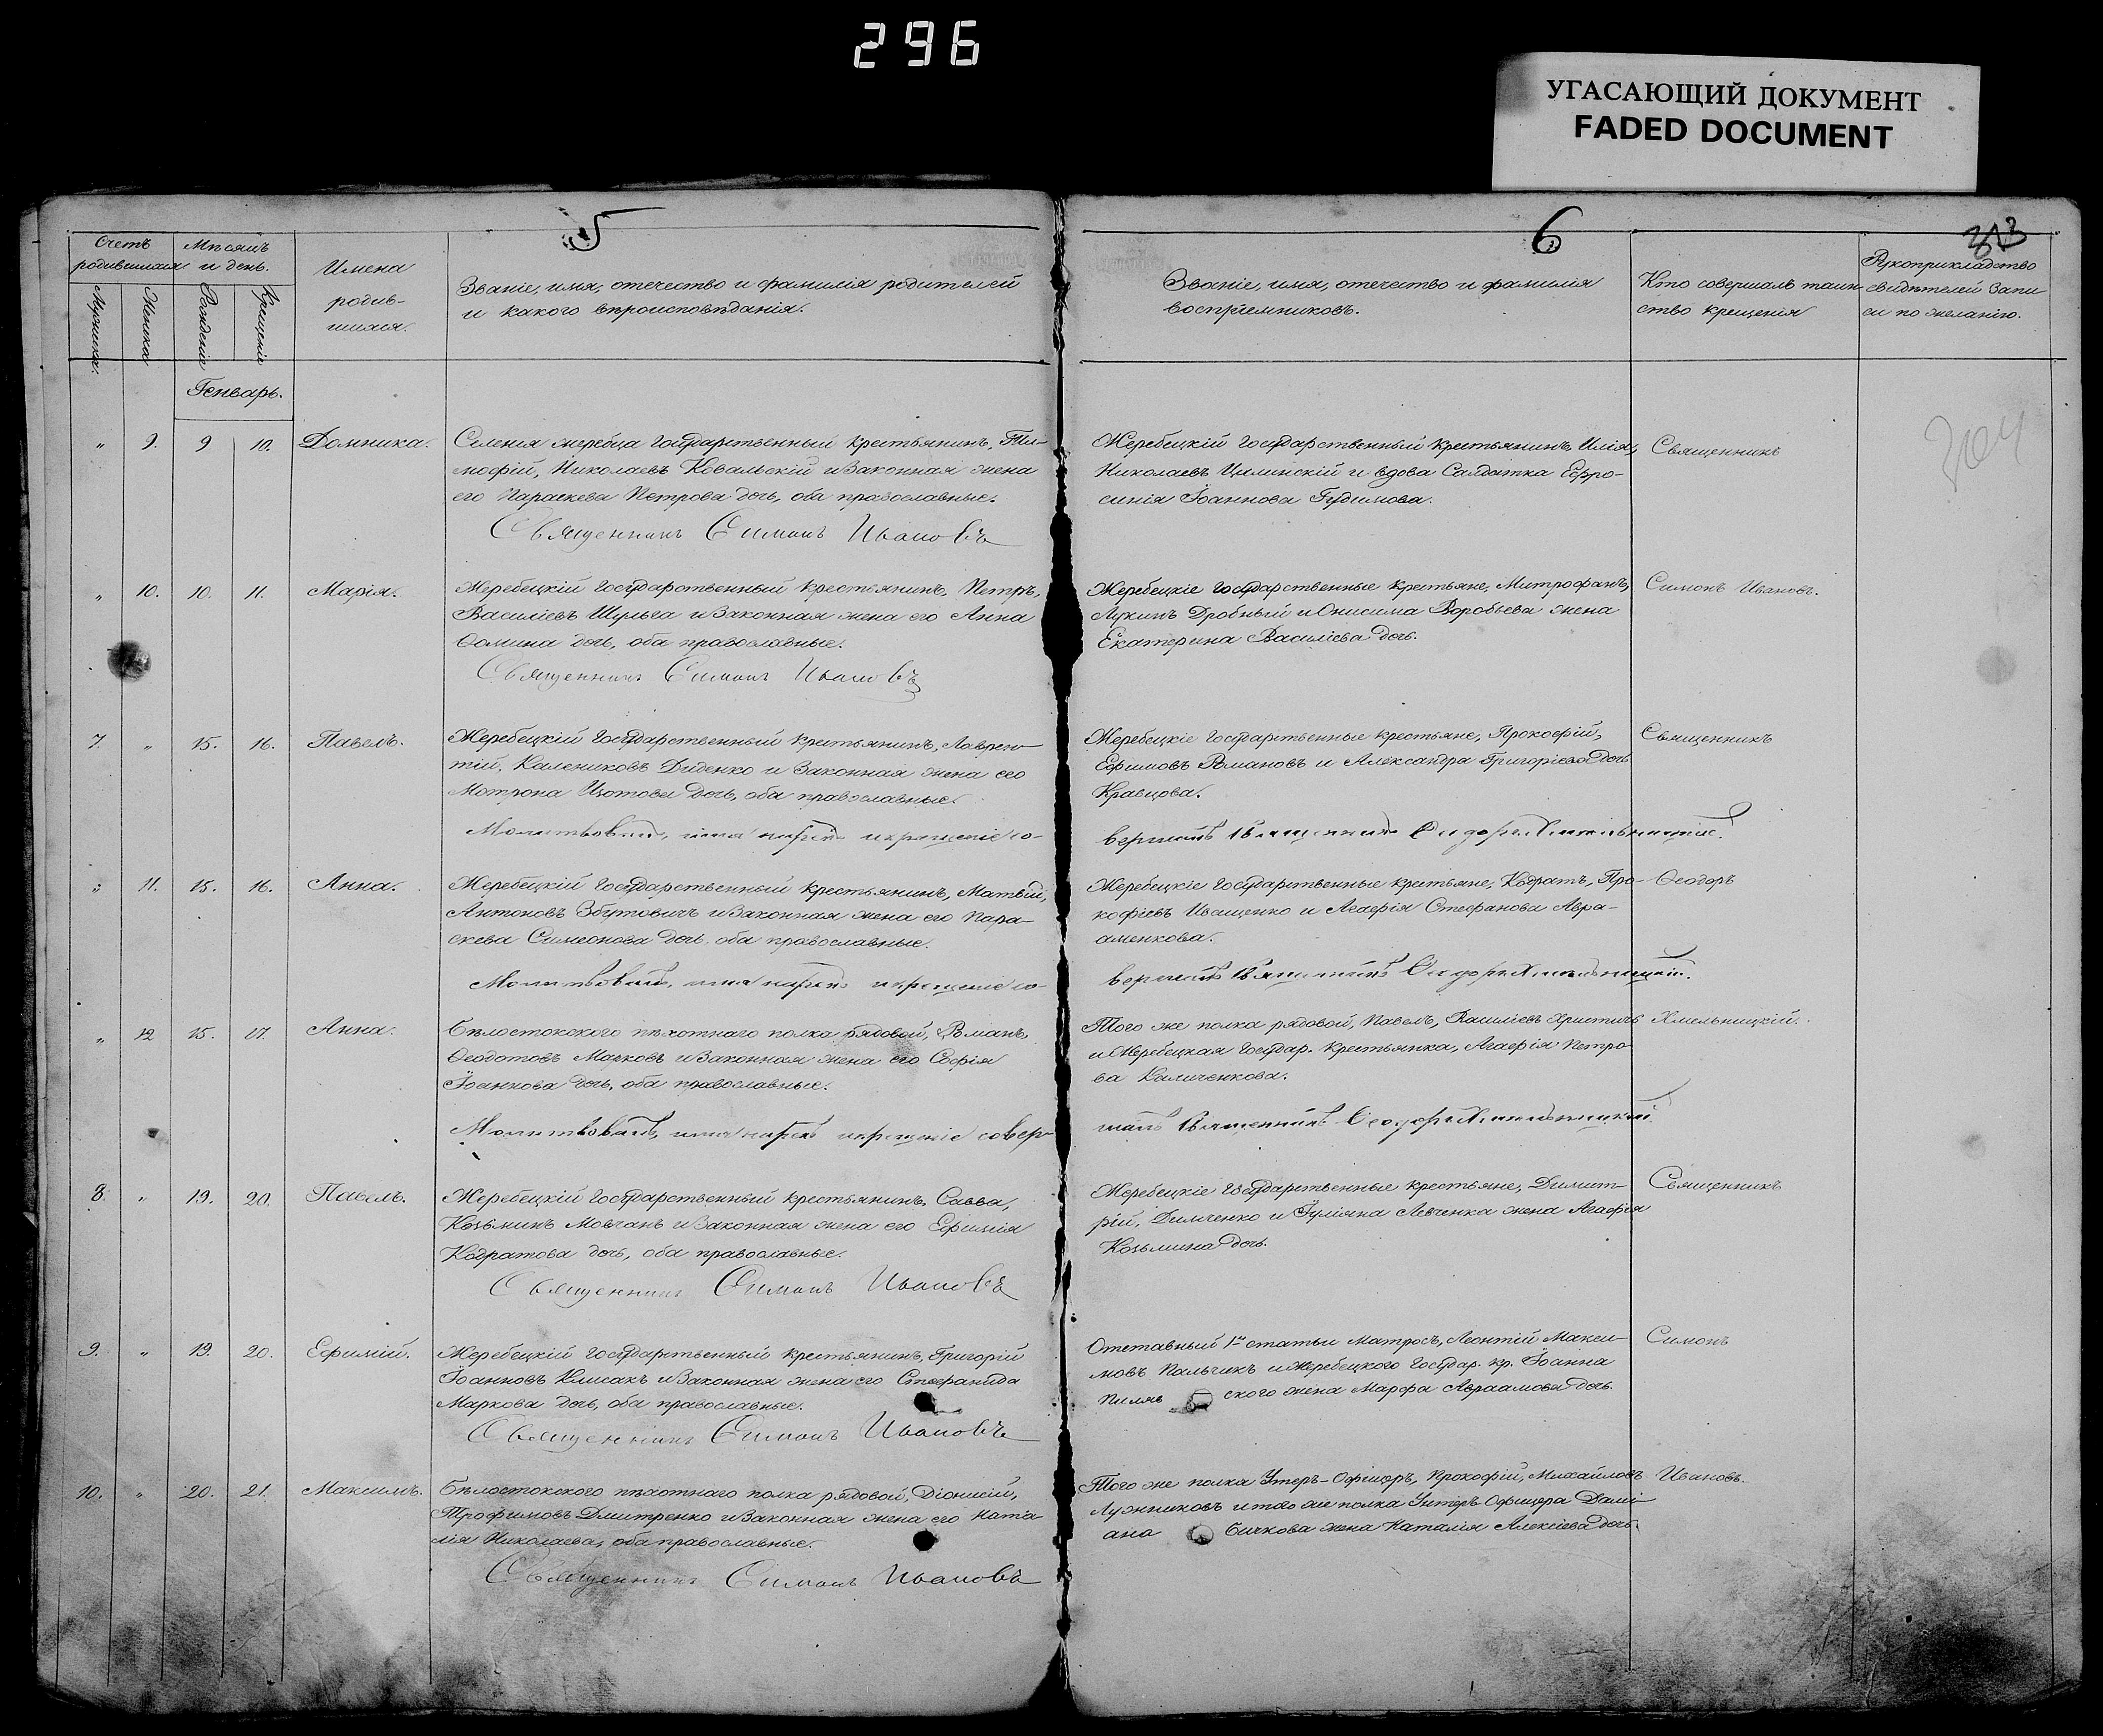 296
УГАСАЮЩИЙ ДОКУМЕНТ
FADED DOCUMENT
5
Счетъ родившихся
Мѣсяцъ и день.
Мужеска.
Женска
Рожденія
Крещенія
Имена
родив-
шихся.
Званіе, имя, отечество и фамилія родителей
и какого вѣроисповѣданія.
Генварь.
„ 9. 9 10. Домника.
Селенія жеребца государственный крестьянинъ, Ти-
мофій, Николаевъ Ковальскій и законная жена
его Параскева Петрова дочь, оба православные.
Священникъ Симонъ Ивановъ
„ 10. 10. 11. Марія.
Жеребецкій государственный крестьянинъ, Петръ,
Василіевъ Шульга и законная жена его Анна
Ѳомина дочь, оба православные.
Священникъ Симонъ Ивановъ
7. „ 15. 16. Павелъ.
Жеребецкій государственный крестьянинъ, Лаврен-
тій, Калениковъ Диденко и законная жена его
Мотрона Изотова дочь, оба православные.
Молитвовалъ, имя нарекъ и крещеніе со-
„ 11. 15. 16. Анна.
Жеребецкій государственный крестьянинъ, Матвій,
Антоновъ Збутовичъ и законная жена его Пара-
скева Симеонова дочь, оба православные.
Молитвовалъ, имя нарекъ и крещеніе со-
„ 12 15. 17. Анна.
Бѣлостокского пѣхотнаго полка рядовой, Романъ,
Ѳеодотовъ Марковъ и законная жена его Софія
Іоаннова дочь, оба православные.
Молитвовалъ, имя нарекъ и крещеніе совер-
8. „ 19. 20. Павелъ.
Жеребецкій государственный крестьянинъ, Савва,
Козьминъ Мовчанъ и законная жена его Ефимія
Кодратова дочь, оба православные.
Священникъ Симонъ Ивановъ
9. „ 19. 20. Ефимій.
Жеребецкій государственный крестьянинъ, Григорій
Іоанновъ Клисакъ и законная жена его Стефанида
Маркова дочь, оба православные.
Священникъ Симонъ Ивановъ
10. „ 20. 21. Максимъ.
Бѣлостокского пѣхотнаго полка рядовой, Діонисій,
Трофимовъ Дмитренко и законная жена его Ната-
лія Николаева, оба православные.
Священникъ Симонъ Ивановъ
6
313
Званіе, имя, отечество и фамилія
воспріемниковъ.
Кто совершалъ таин-
ство крещенія
Рукоприкладство
свидѣтелей запи
си по желанію.
Жеребецкій государственный крестьянинъ, Илія,
Николаевъ Цилинскій и вдова Солдатка Евфро-
синія Іоаннова Гудимова.
Священникъ
Жеребецкіе государственные крестьяне, Митрофанъ,
Лукинъ Дробный и Онисима Воробьева жена
Екатерина Василіева дочь.
Симонъ Ивановъ.
Жеребецкіе государственные крестьяне, Прокофій,
Ефимовъ Романовъ и Александра Григоріева дочь
Кравцова.
Священникъ
вершилъ Священникъ Ѳеодоръ Хмельницкій.
Жеребецкіе государственные крестьяне, Кодратъ, Про-
кофіевъ Иващенко и Агафія Стефанова Авра-
аменкова.
Ѳеодоръ
вершилъ Священникъ Ѳеодоръ Хмельницкій.
Того же полка рядовой, Павелъ, Василіевъ Христичъ
и Жеребецкая государ. крестьянка, Агафія Петро-
ва Каличенкова.
Хмельницкій.
шилъ Священникъ Ѳеодоръ Хмельницкій
Жеребецкіе государственные крестьяне, Димит-
рій, Димченко и Іуліяна Левченка жена Агафія
Козьмина дочь.
Священникъ
Отставный 1й статьи матросъ, Леонтій Макси-
мовъ Пальчикъ и Жеребецкого государ. кр. Іоанна
Пиляв ского жена Марфа Авраамова дочь.
Симонъ
Того же полка Унтеръ-Офицеръ, Прокофій, Михайловъ
Лужниковъ и того же полка Унтеръ-Офицера Дамі-
ана Бичкова жена Наталія Алексіева дочь.
Ивановъ.